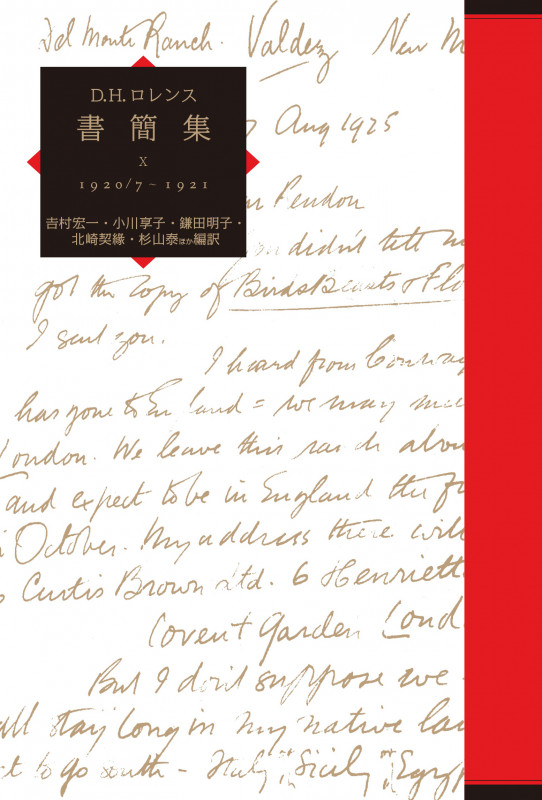 Del Monte Ranch. Valdez New M
D.H.ロレンス
書簡集
X
1920/7 ~ 1921
吉村宏一・小川享子・鎌田明子・
北崎契緣・杉山泰ほか編訳
7 Aug 1925
Rendon
didn't tell m
got the copy of Birds Beasts & Flo
I sent you.
I heard from Conway
has gone to En land = we may mee
London. We leave this ranch abou
and expect to be in England the fi
October. My address there will
Curtis Brown Ltd. 6 Henriett
Covent Garden Lond
But I don't suppose we
all stay long in my native lan
t to go south – Italy Sicily or Egyp